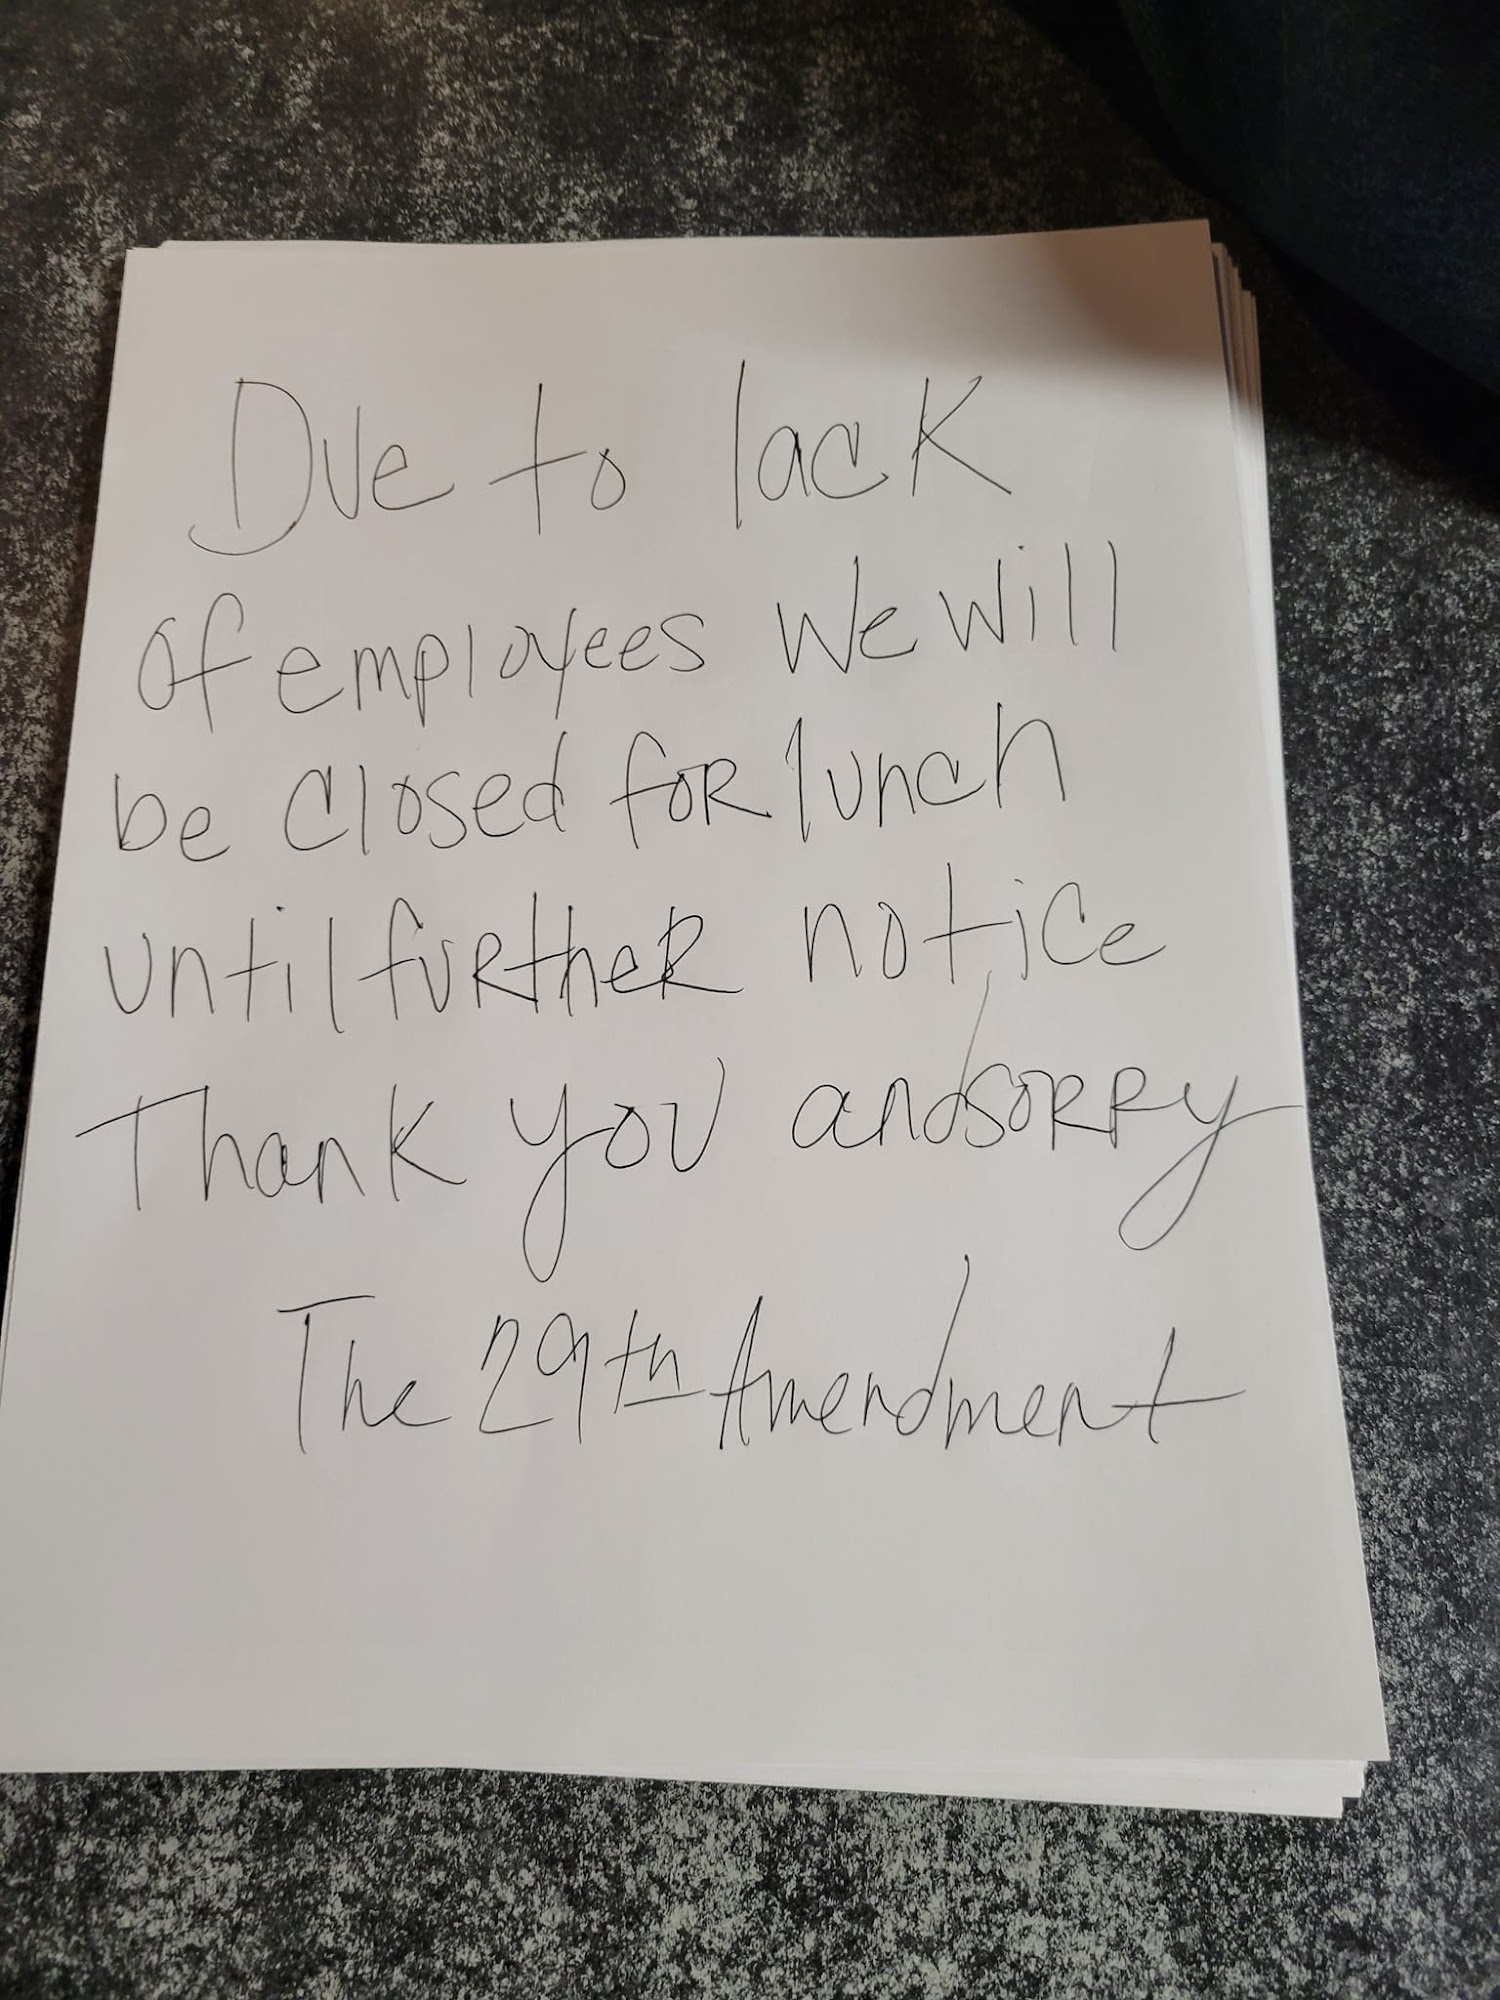 Due to lack
of employees we will
be closed for lunch
until further notice
Thank you and sorry
The 29th Amendment